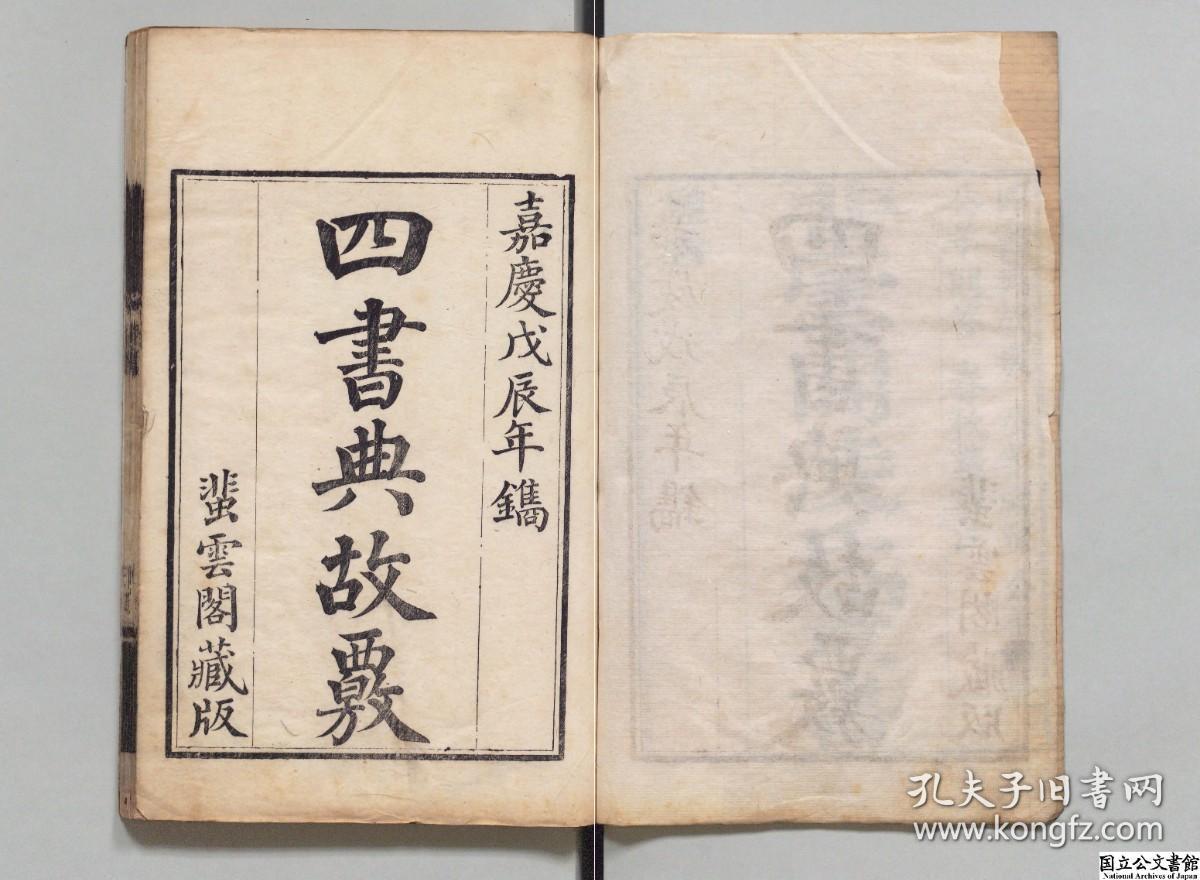 嘉慶戊辰年鐫
四書典故覈
蜚雲閣藏版
孔夫子旧书网
www.kongfz.com
国立公文書館
National Archives of Japan